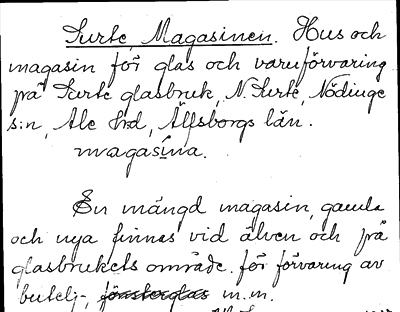 Surte, Magasinen. Hus och
magasin för glas och varuförvaring
på Surte glasbruk, N. Surte, Nödinge
s:n, Ale hd, Älfsborgs län.
magasina.
En mängd magasin, gamla
och nya finnas vid älven och på
glasbrukets område. för förvaring av
butelj-, fönsterglas m.m.